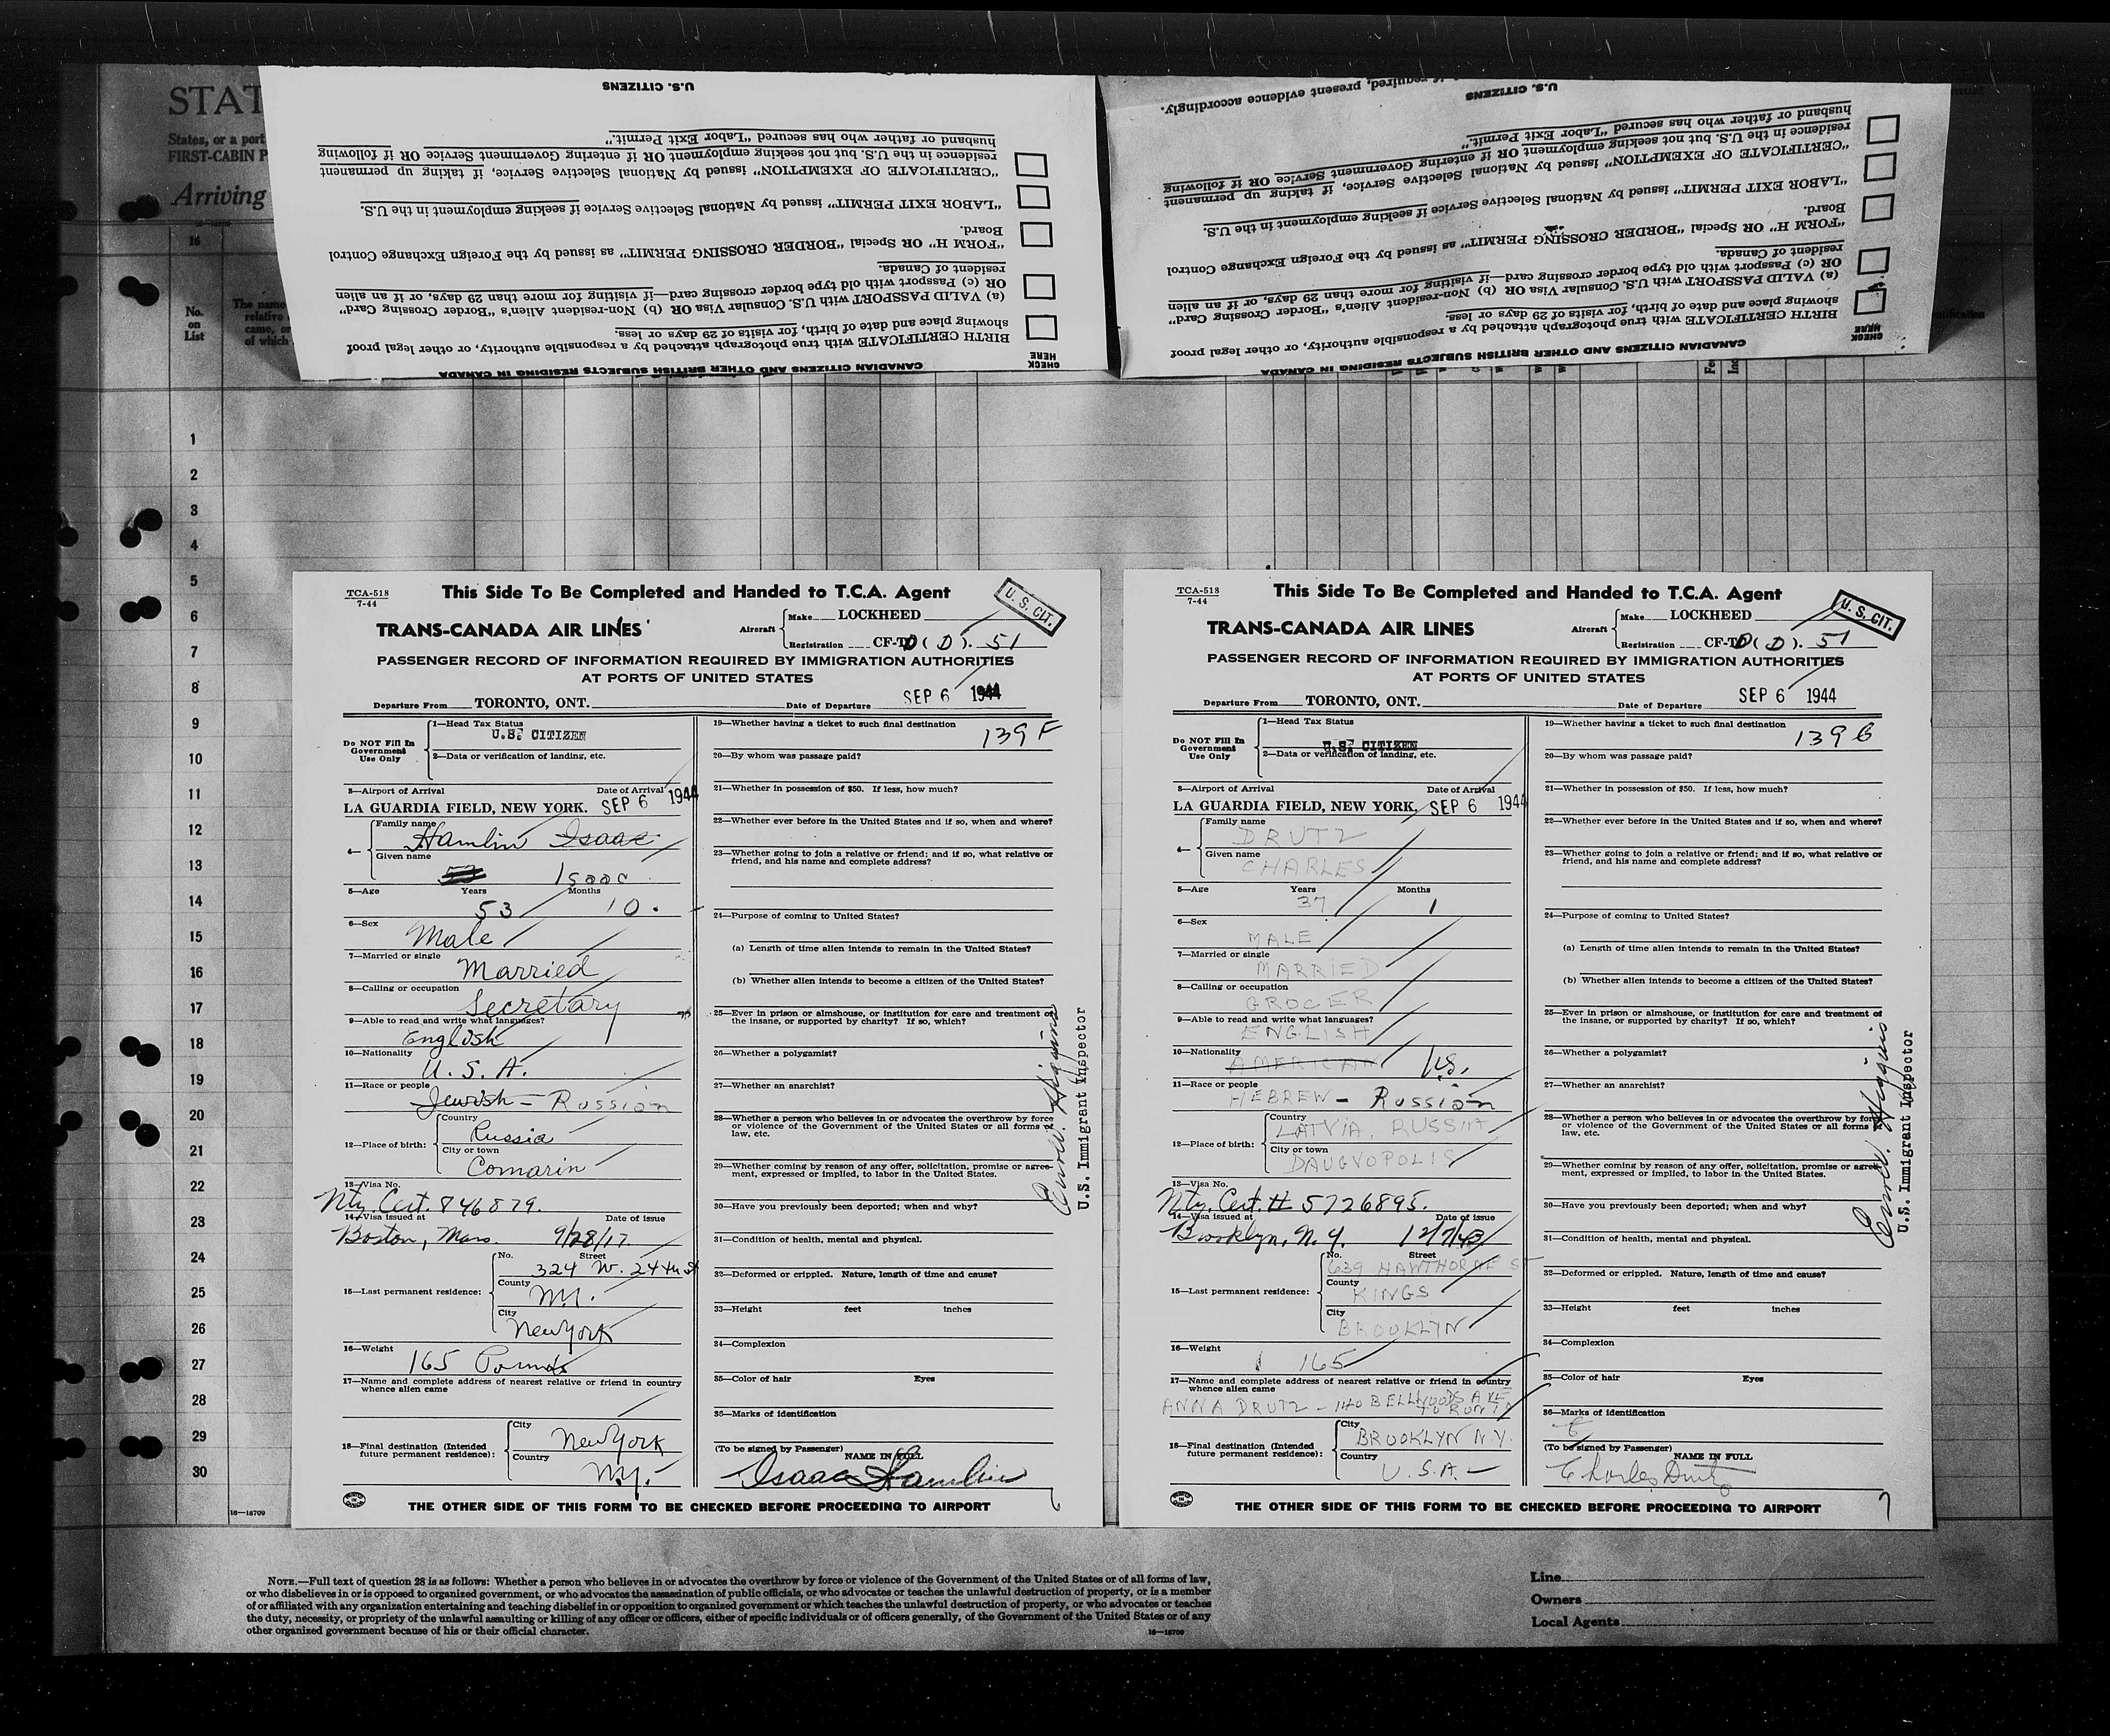 STAT
States, or a port
FIRST-CABIN P
Arriving
16
No.
on
List
The name
relative
came, or
of which
U.S. CITIZENS
husband or father who has secured "Labor Exit Permit."
residence in the U.S. but not seeking employment OR if entering Government Service OR if following
"CERTIFICATE OF EXEMPTION" issued by National Selective Service, if taking up permanent
"LABOR EXIT PERMIT" issued by National Selective Service if seeking employment in the U.S.
Board.
"FORM H" OR Special "BORDER CROSSING PERMIT" as issued by the Foreign Exchange Control
resident of Canada.
OR (c) Passport with old type border crossing card—if visiting for more than 29 days, or if an alien
(a) VALID PASSPORT with U.S. Consular Visa OR (b) Non-resident Alien's "Border Crossing Card"
showing place and date of birth, for visits of 29 days or less.
BIRTH CERTIFICATE with true photograph attached by a responsible authority, or other legal proof
CHECK
HERE
CANADIAN CITIZENS AND OTHER BRITISH SUBJECTS RESIDING IN CANADA
required, present evidence accordingly.
U.S. CITIZENS
husband or father who has secured "Labor Exit Permit."
residence in the U.S. but not seeking employment OR if entering Government Service OR if following
"CERTIFICATE OF EXEMPTION" issued by National Selective Service, if taking up permanent
"LABOR EXIT PERMIT" issued by National Selective Service if seeking employment in the U.S.
Board.
"FORM H" OR Special "BORDER CROSSING PERMIT" as issued by the Foreign Exchange Control
resident of Canada.
OR (c) Passport with old type border crossing card—if visiting for more than 29 days, or if an alien
(a) VALID PASSPORT with U.S. Consular Visa OR (b) Non-resident Alien's "Border Crossing Card"
showing place and date of birth, for visits of 29 days or less.
BIRTH CERTIFICATE with true photograph attached by a responsible authority, or other legal proof
CHECK
HERE
CANADIAN CITIZENS AND OTHER BRITISH SUBJECTS RESIDING IN CANADA
1
2
3
4
5
6
7
8
9
10
11
12
13
14
15
16
17
18
19
20
21
22
23
24
25
26
27
28
29
30
16—18709
TCA-518
7-44
This Side To Be Completed and Handed to T.C.A. Agent
U. S. CIT.
TRANS-CANADA AIR LINES
Aircraft
Make LOCKHEED
Registration CF-T (D). 51
PASSENGER RECORD OF INFORMATION REQUIRED BY IMMIGRATION AUTHORITIES
AT PORTS OF UNITED STATES
Departure From TORONTO, ONT. Date of Departure SEP 6 1944
Do NOT Fill In
Government
Use Only
1—Head Tax Status
U.S. CITIZEN
2—Data or verification of landing, etc.
3—Airport of Arrival Date of Arrival
LA GUARDIA FIELD, NEW YORK. SEP 6 1944
4—
Family name
Hamlin Isaac
Given name
53 Isaac
5—Age Years Months
53 10.
6—Sex
Male
7—Married or single
Married
8—Calling or occupation
Secretary
9—Able to read and write what languages?
English
10—Nationality
U. S. A.
11—Race or people
Jewish - Russian
12—Place of birth:
Country
Russia
City or town
Comarin
13—Visa No.
Nty. Cert. 846879.
14—Visa issued at Date of issue
Boston, Mass. 9/28/17
15—Last permanent residence:
No. Street
324 W. 24th St
County
N.Y.
City
New York
16—Weight
165 Pounds
17—Name and complete address of nearest relative or friend in country
whence alien came
18—Final destination (Intended
future permanent residence):
City
New York
Country
N.Y.
19—Whether having a ticket to such final destination
139 F
20—By whom was passage paid?
21—Whether in possession of $50. If less, how much?
22—Whether ever before in the United States and if so, when and where?
23—Whether going to join a relative or friend; and if so, what relative or
friend, and his name and complete address?
24—Purpose of coming to United States?
(a) Length of time alien intends to remain in the United States?
(b) Whether alien intends to become a citizen of the United States?
25—Ever in prison or almshouse, or institution for care and treatment of
the insane, or supported by charity? If so, which?
26—Whether a polygamist?
27—Whether an anarchist?
28—Whether a person who believes in or advocates the overthrow by force
or violence of the Government of the United States or all forms of
law, etc.
29—Whether coming by reason of any offer, solicitation, promise or agree-
ment, expressed or implied, to labor in the United States.
30—Have you previously been deported; when and why?
31—Condition of health, mental and physical.
32—Deformed or crippled. Nature, length of time and cause?
33—Height feet inches
34—Complexion
35—Color of hair Eyes
36—Marks of identification
(To be signed by Passenger)
NAME IN FULL
Isaac Hamlin
U.S. Immigrant Inspector
THE OTHER SIDE OF THIS FORM TO BE CHECKED BEFORE PROCEEDING TO AIRPORT
TCA-518
7-44
This Side To Be Completed and Handed to T.C.A. Agent
U. S. CIT.
TRANS-CANADA AIR LINES
Aircraft
Make LOCKHEED
Registration CF-T (D). 51
PASSENGER RECORD OF INFORMATION REQUIRED BY IMMIGRATION AUTHORITIES
AT PORTS OF UNITED STATES
Departure From TORONTO, ONT. Date of Departure SEP 6 1944
Do NOT Fill In
Government
Use Only
1—Head Tax Status
U.S. CITIZEN
2—Data or verification of landing, etc.
3—Airport of Arrival Date of Arrival
LA GUARDIA FIELD, NEW YORK. SEP 6 1944
4—
Family name
DRUTZ
Given name
CHARLES
5—Age Years Months
37 1
6—Sex
MALE
7—Married or single
MARRIED
8—Calling or occupation
GROCER
9—Able to read and write what languages?
ENGLISH
10—Nationality
AMERICAN U.S.
11—Race or people
HEBREW - Russian
12—Place of birth:
Country
LATVIA, RUSSIA
City or town
DAUGVOPOLIS
13—Visa No.
Nty. Cert. # 5726895.
14—Visa issued at Date of issue
Brooklyn, N.Y. 12/7/43
15—Last permanent residence:
No. Street
639 HAWTHORNE ST
County
KINGS
City
BROOKLYN
16—Weight
165
17—Name and complete address of nearest relative or friend in country
whence alien came
ANNA DRUTZ - 140 BELLWOODS AVE
TORONTO
18—Final destination (Intended
future permanent residence):
City
BROOKLYN N.Y.
Country
U.S.A.
19—Whether having a ticket to such final destination
139 G
20—By whom was passage paid?
21—Whether in possession of $50. If less, how much?
22—Whether ever before in the United States and if so, when and where?
23—Whether going to join a relative or friend; and if so, what relative or
friend, and his name and complete address?
24—Purpose of coming to United States?
(a) Length of time alien intends to remain in the United States?
(b) Whether alien intends to become a citizen of the United States?
25—Ever in prison or almshouse, or institution for care and treatment of
the insane, or supported by charity? If so, which?
26—Whether a polygamist?
27—Whether an anarchist?
28—Whether a person who believes in or advocates the overthrow by force
or violence of the Government of the United States or all forms of
law, etc.
29—Whether coming by reason of any offer, solicitation, promise or agree-
ment, expressed or implied, to labor in the United States.
30—Have you previously been deported; when and why?
31—Condition of health, mental and physical.
32—Deformed or crippled. Nature, length of time and cause?
33—Height feet inches
34—Complexion
35—Color of hair Eyes
36—Marks of identification
(To be signed by Passenger)
NAME IN FULL
Charles Drutz
U.S. Immigrant Inspector
THE OTHER SIDE OF THIS FORM TO BE CHECKED BEFORE PROCEEDING TO AIRPORT
NOTE.—Full text of question 28 is as follows: Whether a person who believes in or advocates the overthrow by force or violence of the Government of the United States or of all forms of law,
or who disbelieves in or is opposed to organized government, or who advocates the assassination of public officials, or who advocates or teaches the unlawful destruction of property, or is a member
of or affiliated with any organization entertaining and teaching disbelief in or opposition to organized government or which teaches the unlawful destruction of property, or who advocates or teaches
the duty, necessity, or propriety of the unlawful assaulting or killing of any officer or officers, either of specific individuals or of officers generally, of the Government of the United States or of any
other organized government because of his or their official character.
16—18709
Line
Owners
Local Agents